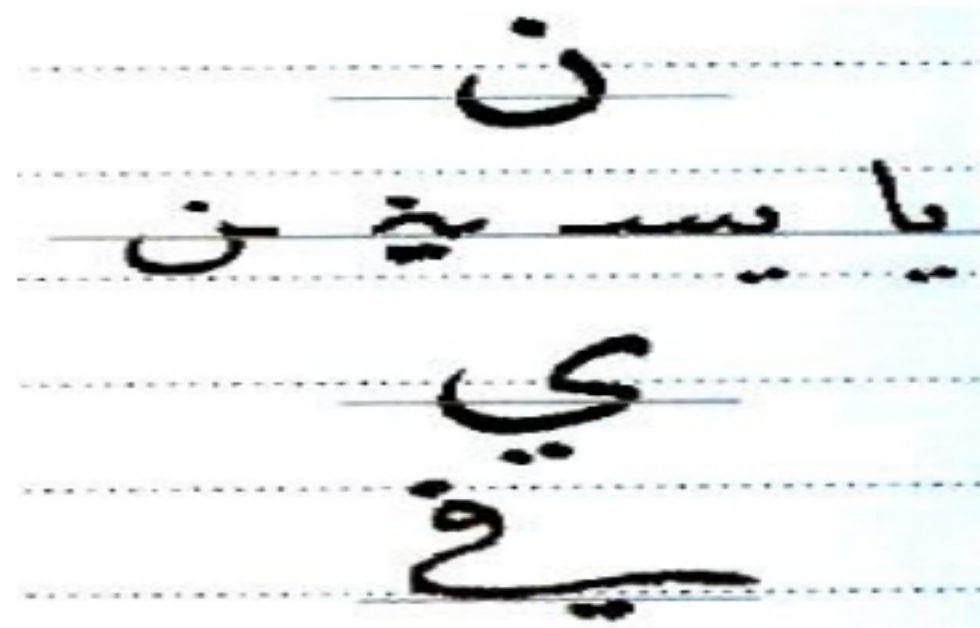 ن
يا يسـ ـن
ي
في